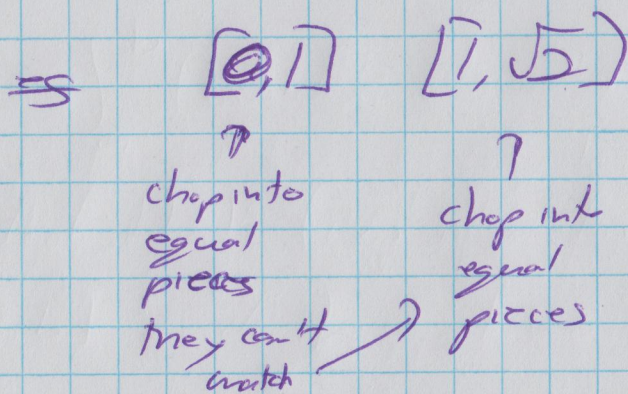 eg [0,1] [1,√2)
chop into
equal
pieces
they can't
match
chop int
equal
pieces